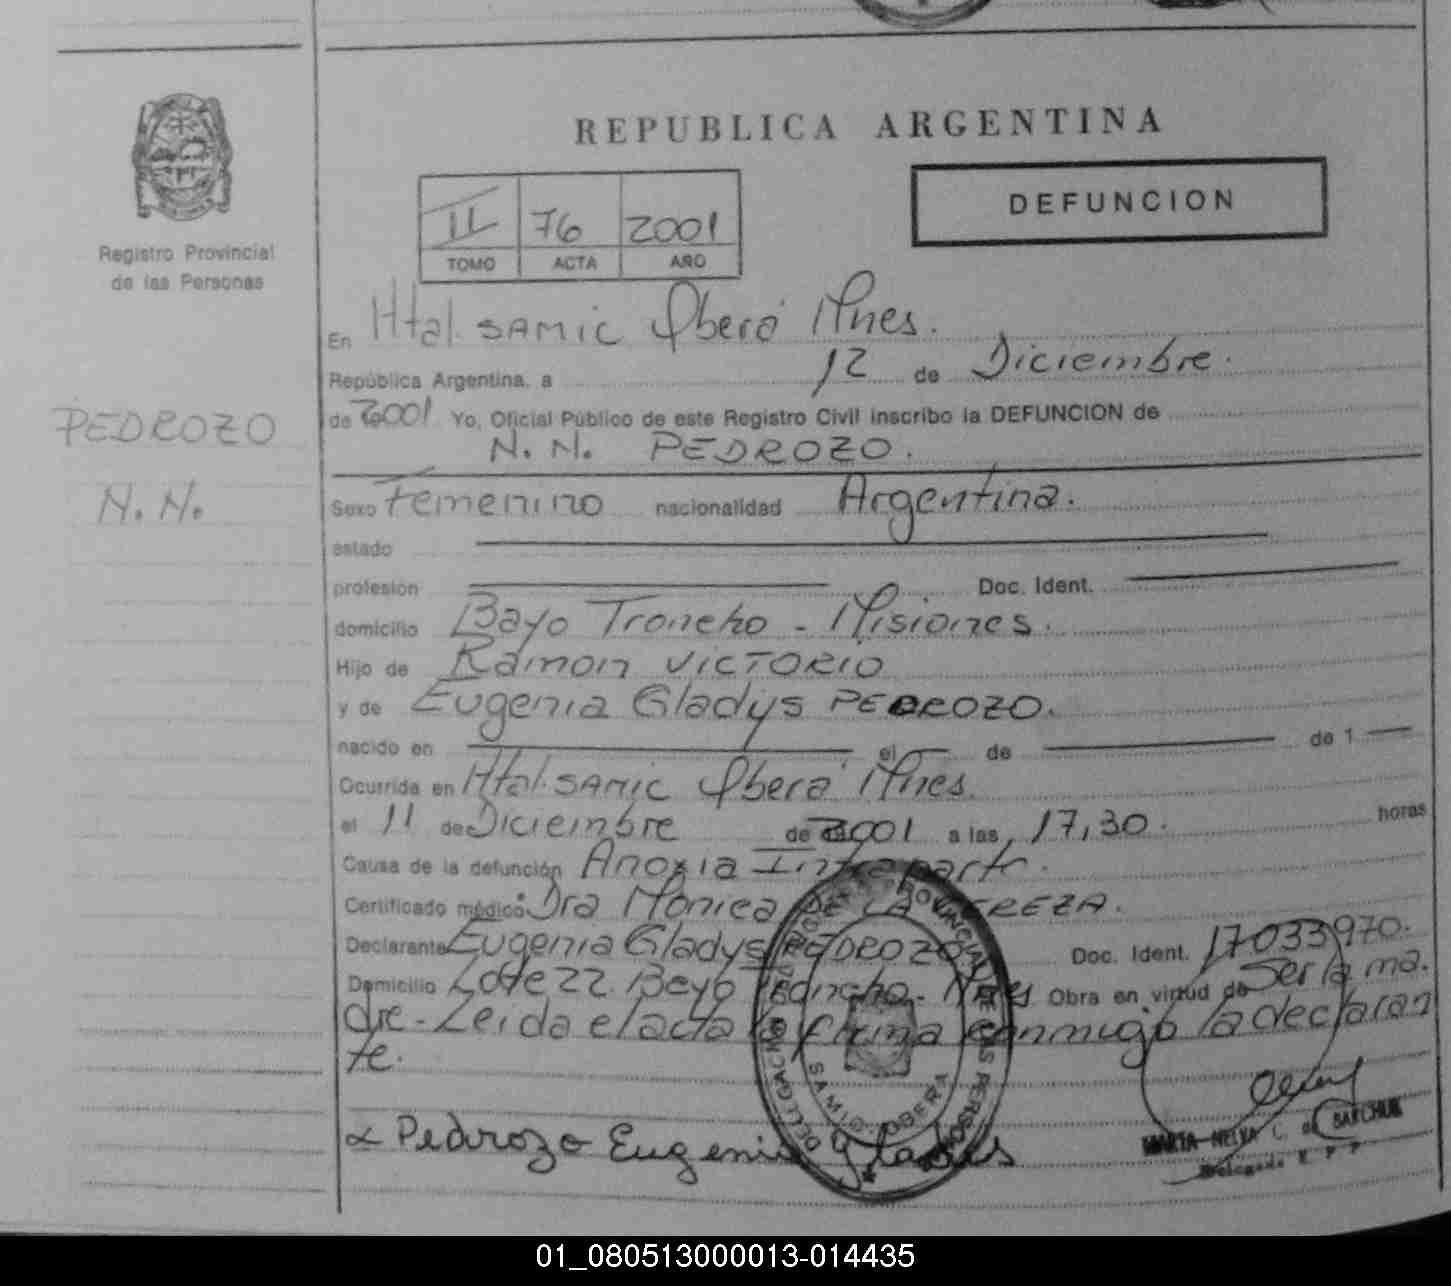 REPUBLICA ARGENTINA
DEFUNCION
II 76 2001
TOMO ACTA AÑO
Registro Provincial
de las Personas
PEDROZO
N.N.
En Htal. SAMIC Oberá Mnes.
República Argentina, a 12 de Diciembre.
de 2001 Yo, Oficial Público de este Registro Civil inscribo la DEFUNCION de
N. N. PEDROZO.
Sexo Femenino nacionalidad Argentina.
estado
profesión Doc. Ident.
domicilio Bayo Troncho - Misiones.
Hijo de Ramon VICTORIO
y de Eugenia Gladys PEDROZO.
nacido en el de de 1
Ocurrida en Htal. SAMIC Oberá Mnes.
el 11 de Diciembre de 2001 a las 17,30. horas
Causa de la defunción Anoxia Intraparto.
Certificado médico Dra Mónica DE LA PEREZA.
Declarante Eugenia Gladys PEDROZO Doc. Ident. 17033970.
Domicilio Lote 22. Bayo Troncho - Mnes Obra en virtud de Ser la ma.
dre - Leida el acta la firma conmigo la declaran
te.
Pedrozo Eugenia Gladis
DELEGACION REGISTRO PROVINCIAL DE LAS PERSONAS
SAMIC OBERA
MARTA NELVA L. de SAKCHUK
Delegada R. P. P
01_080513000013-014435